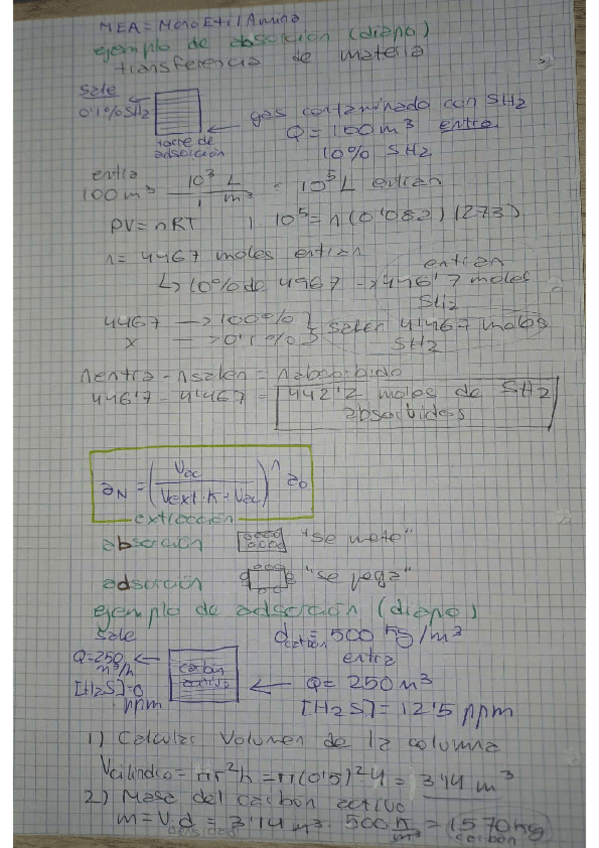 MEA = MonoEtilAmina
ejemplo de absorción (diapo)
transferencia de materia
sale
0'1% SH2
torre de
adsorción
gas contaminado con SH2
Q = 100 m³ entra
10% SH2
entra
100 m³ 10³ L / 1 m³ = 10⁵ L entran
PV = nRT | 10⁵ = n (0'082) (273)
n = 4467 moles entran
↳ 10% de 4467 → 446'7 moles SH2 entran
4467 → 100%
x → 0'1%
} salen 4'467 moles SH2
nentra - nsalen = nabsorbido
446'7 - 4'467 = 442'2 moles de SH2
absorbidos
aN = (Vac / Vext · K + Vac)ⁿ a0
extracción
absorción "se mete"
adsorción "se pega"
ejemplo de adsorción (diapo)
sale
Q = 250 m³/h
[H2S] = 0 ppm
carbón
activo
dcarbón = 500 kg/m³
entra
Q = 250 m³
[H2S] = 12'5 ppm
1) Calcular Volumen de la columna
Vcilindro = πr²h = π(0'5)²·4 = 3'14 m³
2) Masa del carbón activo
m = V·d = 3'14 m³ · 500 K/m³ = 1570 kg
densidad
carbón